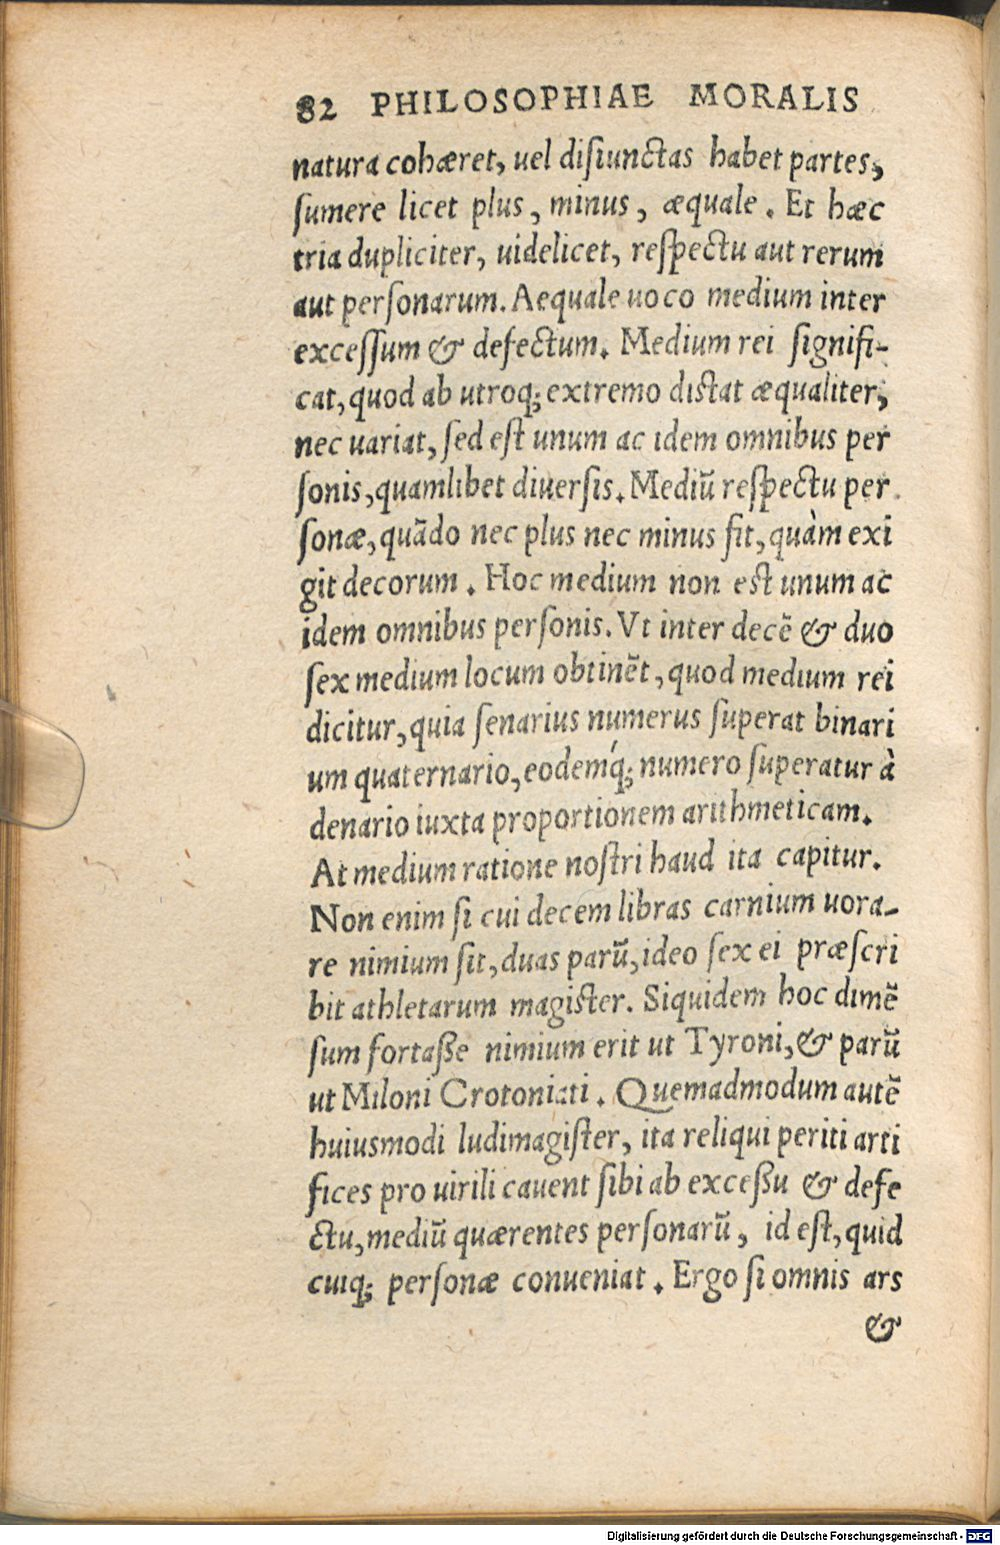 82 PHILOSOPHIAE MORALIS
natura cohæret, uel diſiunctas habet partes,
ſumere licet plus, minus, æquale. Et hæc
tria dupliciter, uidelicet, reſpectu aut rerum
aut perſonarum. Aequale uoco medium inter
exceſſum & defectum. Medium rei ſignifi-
cat, quod ab utroq; extremo diſtat æqualiter,
nec uariat, ſed eſt unum ac idem omnibus per
ſonis, quamlibet diuerſis. Mediū reſpectu per
ſonæ, quādo nec plus nec minus fit, quàm exi
git decorum. Hoc medium non eſt unum ac
idem omnibus perſonis. Vt inter decē & duo
ſex medium locum obtinēt, quod medium rei
dicitur, quia ſenarius numerus ſuperat binari
um quaternario, eodemq́; numero ſuperatur à
denario iuxta proportionem arithmeticam.
At medium ratione noſtri haud ita capitur.
Non enim ſi cui decem libras carnium uora-
re nimium ſit, duas parū, ideo ſex ei præſcri
bit athletarum magiſter. Siquidem hoc dimē
ſum fortaſſe nimium erit ut Tyroni, & parū
ut Miloni Crotoniati. Quemadmodum autē
huiusmodi ludimagiſter, ita reliqui periti arti
fices pro uirili cauent ſibi ab exceſſu & defe
ctu, mediū quærentes perſonarū, id eſt, quid
cuiq; perſonæ conueniat. Ergo ſi omnis ars
&
Digitalisierung gefördert durch die Deutsche Forschungsgemeinschaft - DFG